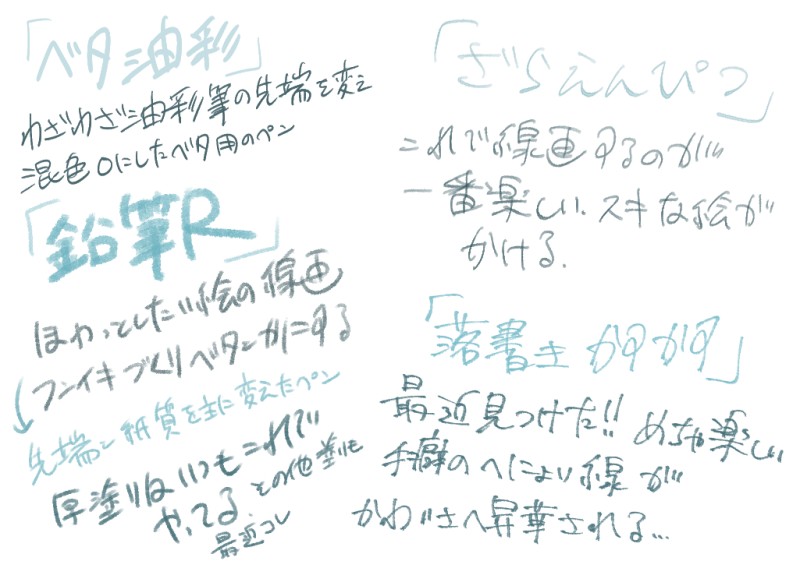 「ベタ油彩」
わざわざ油彩筆の先端を変え
混色0にしたベタ用のペン
「鉛筆R」
ほわっとしたい絵の線画
フンイキづくりベタンかにする
先端と紙質を主に変えたペン
厚塗りはいつもこれで
やってる その他塗りも
最近コレ
「ざらえんぴつ」
これで線画するのが
一番楽しい。スキな絵が
かける。
「落書きカタカタ」
最近見つけた!! めちゃ楽しい
手癖のへにょい線が
かわいさへ昇華される…